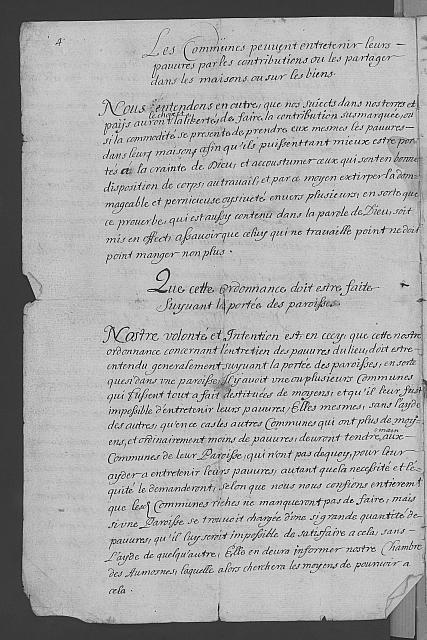 4
Les Communes peuvent entretenir leurs
pauures par les contributions ou les partager
dans les maisons, ou sur les biens.
Nous entendons en outre, que nos suiects dans nos terres et
le choix et
païjs auront la liberté de faire la contribution susmarquée, ou
si la commodité se presente de prendre eux mesmes les pauures
dans leurs maisons, afin qu'ils puissent tant mieux estre por
tés a la crainte de Dieu, et accoustumer ceux qui sont en bonne
disposition de corps, au trauail, et par ce moyen extirper la dom
mageable et pernicieuse oysiueté en vers plusieurs; en sorte que
ce prouerbe, qui est aussy contenu dans la parole de Dieu, soit
mis en effect, assauoir que celuy qui ne trauaille point ne doit
point manger non plus.
Que cette ordonnance doit estre faite
suyuant la portée des paroisses.
Nostre volonté et Intention est, en cecy, que cette nostre
ordonnance concernant l'entretien des pauures du lieu, doit estre
entendu generalement suyuant la portée des paroisses, en sorte
que si dans vne paroisse il y auoit vne ou plusieurs Communes
qui fussent tout a fait destituées de moyens, et qu'il leur fust
impossible d'entretenir leurs pauures Elles mesmes, sans l'ayde
des autres, qu'en ce cas les autres Communes qui ont plus de moy
ens, et ordinairement moins de pauures, deuront tendre aux
main
Communes de leur Paroisse, qui n'ont pas dequoy, pour leur
ayder a entretenir leurs pauures, autant que la necessité et le
quité le demanderont, selon que nous nous confions entierement
que les Communes riches ne manqueront pas de faire; mais
si vne Paroisse se trouuoit chargée d'vne si grande quantité de
pauures, qu'il luy seroit impossible de satisfaire a cela, sans
l'ayde de quelqu'autre, Elle en deura informer nostre Chambre
des Aumosnes, laquelle alors cherchera les moyens de pouruoir a
cela.